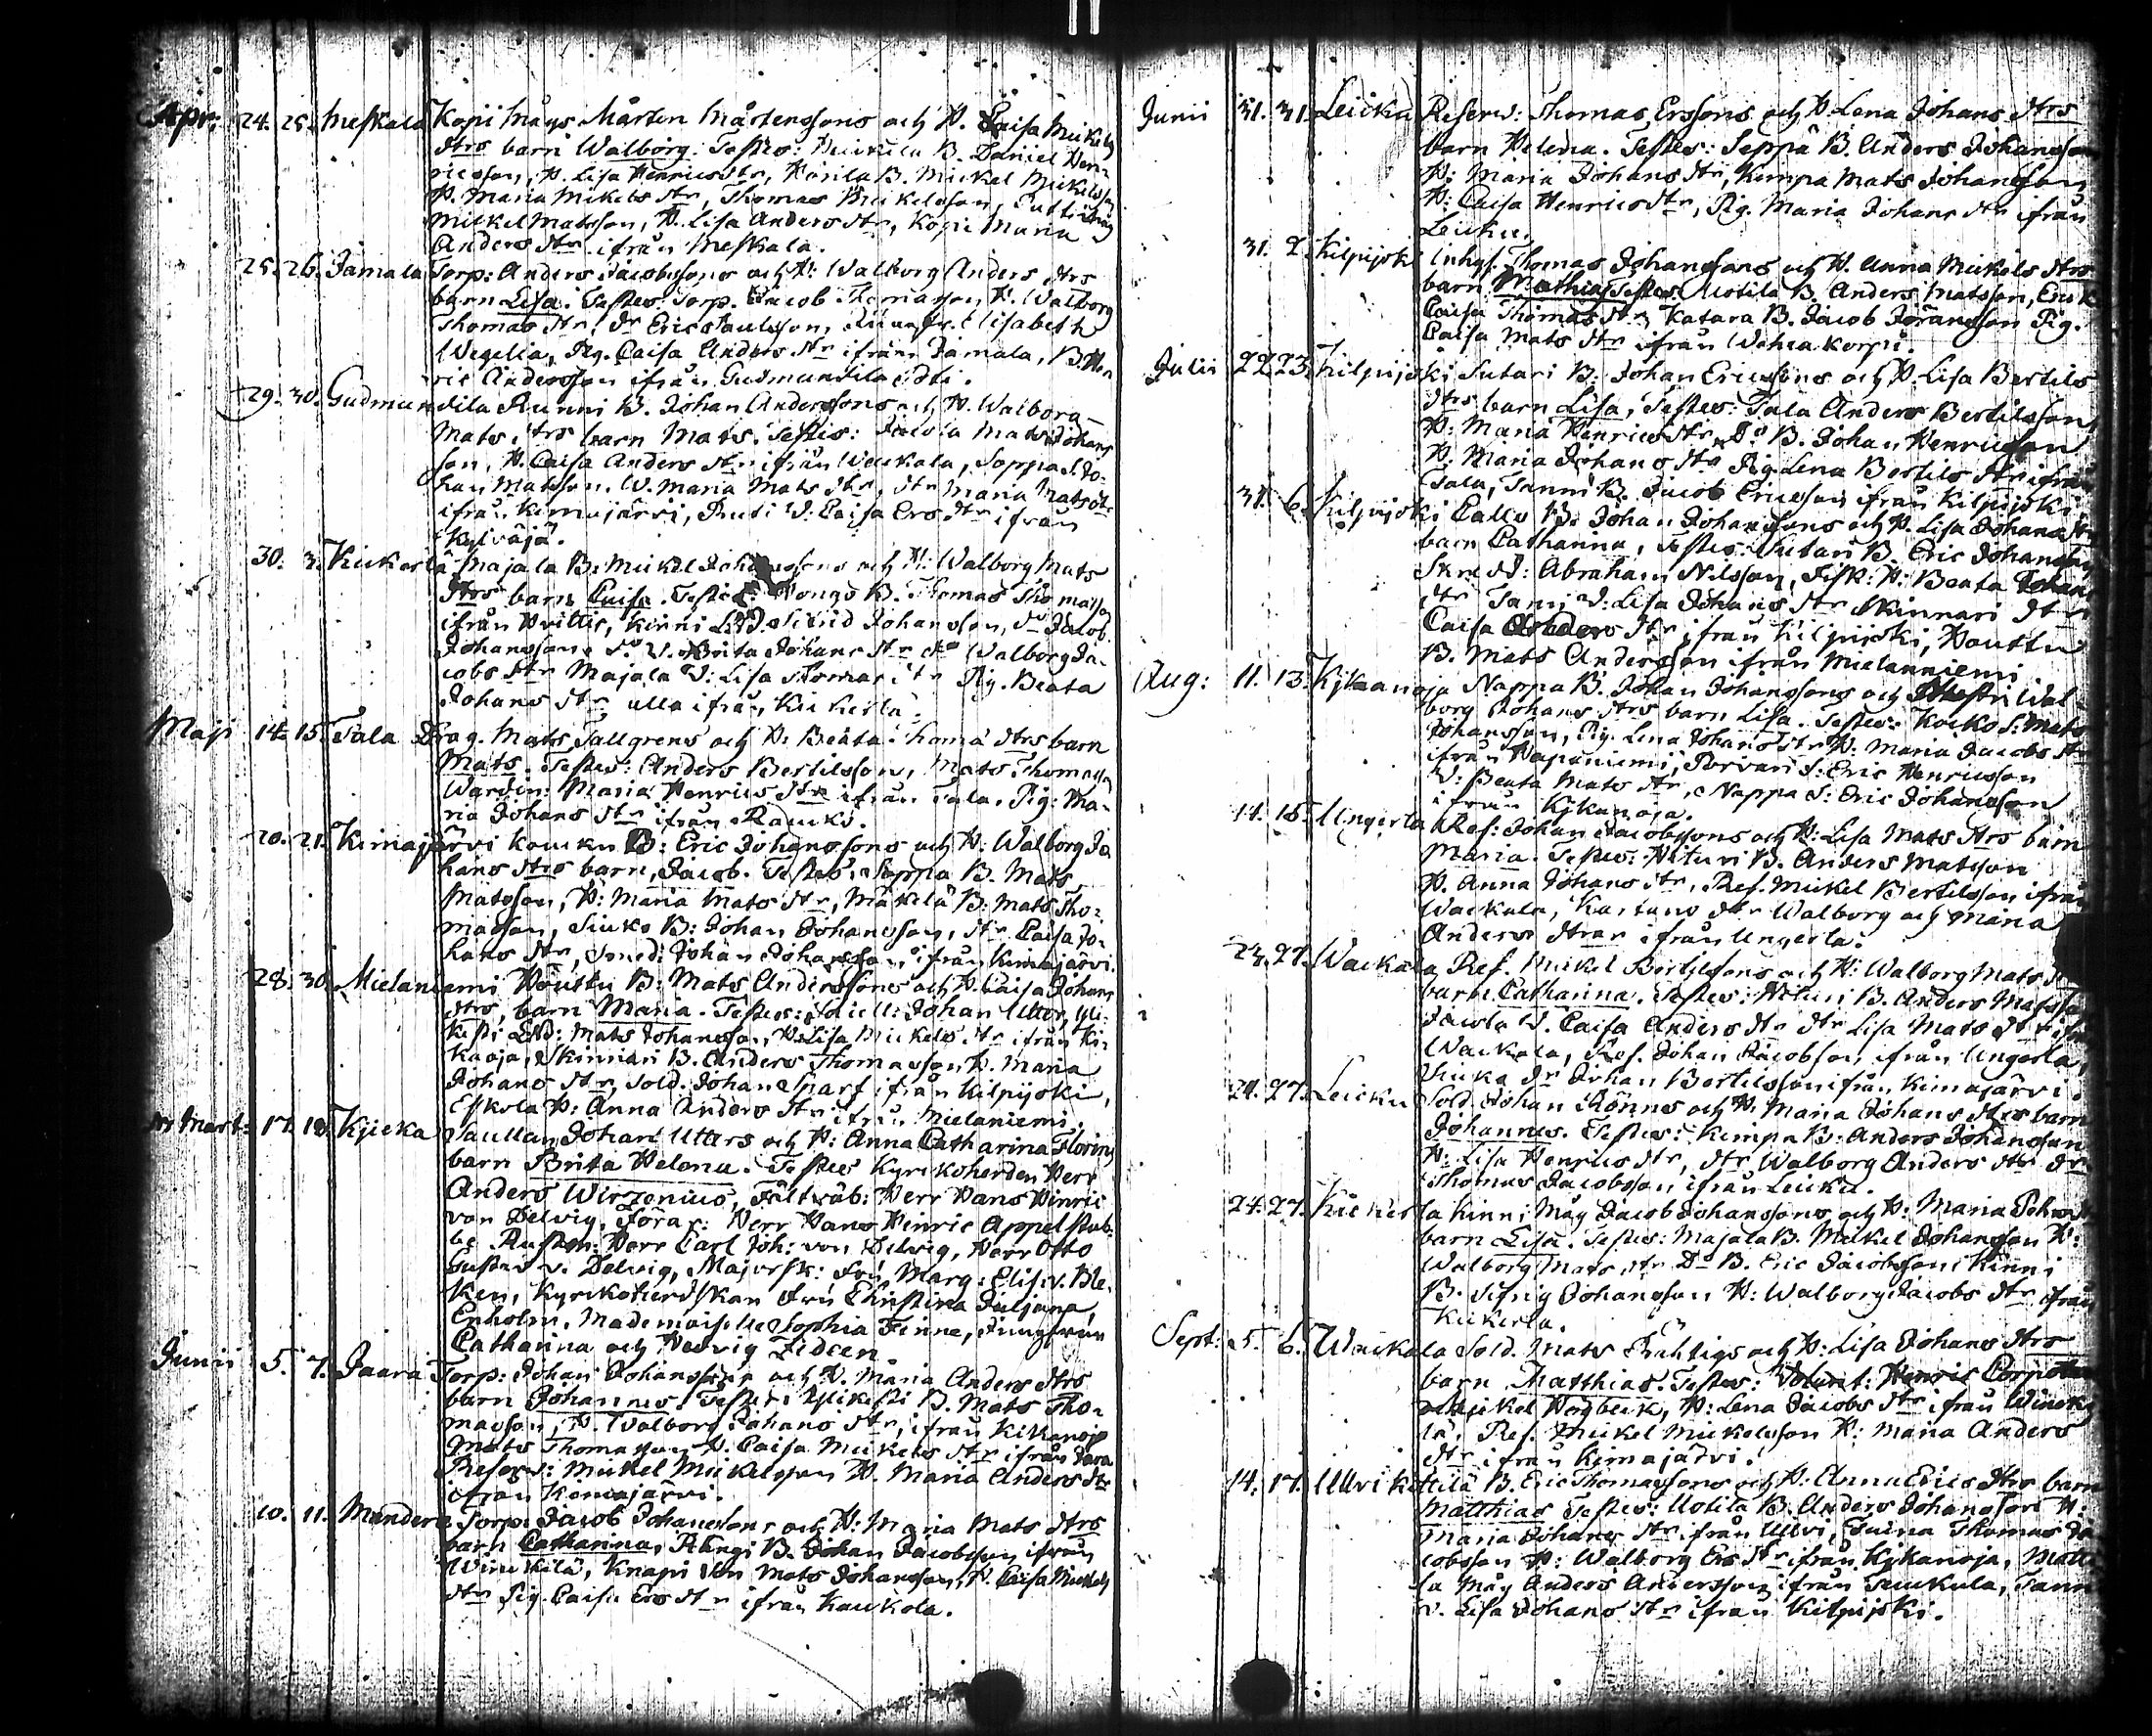 Apr: 24. 25. Meskala Kopi Mågs Mårten Mårtenssons och H. Caisa Mickels
dtrs barn Walborg. Testes: B. Daniel Hen-
ricsson, H. Lisa Henricsdtr, B. Mickel Mickelsson
H. Maria Mickels dtr, Thomas Mickelsson,
Mickel Matsson, H. Lisa Anders dtr, Kopi Maria
Anders dtr ifrån Meskala.
25. 26. Jamala Torp: Anders Jacobssons och H: Walborg Anders dtrs
barn Lisa. Testes: Torp. Jacob Thomasson, H. Walborg
Thomas dtr, Dr Eric Paulsson, Elisabeth
Wegelia, Pig. Caisa Anders dtr ifrån Jamala, B. Hen
ric Andersson ifrån Gudmundila
29. 30. Gudmundila Runni B. Johan Anderssons och H. Walborg
Mats dtrs barn Mats. Testes: Jacola Mats Johans
son, H. Caisa Anders dtr ifrån Wackala, Soppa S. Jo-
han Matsson. W. Maria Mats dtr, dtr Maria Mats dtr
ifrån Kimajärvi, W: Caisa Ers dtr ifrån
30. 3. Kickerlä Majala B: Mickel Johanssons och H: Walborg Mats
dtrs barn Caisa. Testes: Hongo B. Thomas Thomasson
ifrån Prittis, Kinni Johansson, dr Jacob
Johansson, Brita Johans dtr Walborg Ja-
cobs dtr Majala W: Lisa Thomas dtr Pig. Beata
Johans dtr alla ifrån Kickerlä.
Maji 14. 15. Tala Drag. Mats Tallgrens och H: Beata Thomæ dtrs barn
Mats. Testes: Anders Bertilsson, Mats Thomasson
Wärdin: Maria Henrics dtr ifrån Tala. Pig: Ma-
ria Johans dtr ifrån Raucki.
20. 21. Kimajärvi Koucku B: Eric Johanssons och H: Walborg Jo
hans dtrs barn, Jacob. Testes: Soppa B. Mats
Matsson, H: Maria Mats dtr, Mäkelä B: Mats Tho-
masson, B: Johan Johansson, dtr Caisa Jo-
hans dtr, Smed: Johan Johansson, ifrån Kimajärvi.
28. 30. Mielaniemi Houttu B: Mats Anderssons och H. Caisa Johans
dtrs, barn Maria. Testes: Johan Utter, Yli-
kesti Mats Johansson, H: Lisa Mickels dtr ifrån Ki-
kaoja, Skinnari B. Anders Thomasson, H. Maria
Johans dtr, Sold. Johan Sparf ifrån Kilpijoki,
Eskola H: Anna Anders dtr ifrån Mielaniemi.
Mart: 17. 18. Kjicka Johan Utters och H: Anna Catharina Florins
barn Brita Helena. Testes Kyrckoherden Herr
Anders Wirzenius, Fältwäb: Herr Hans Hinric
von Delvig, Förar: Herr Hans Hinric Appelstub-
be Rustm: Herr Carl Joh: von Delwig, Herr Otto
Gustav v. Delvig, Majorsk: Fru Marg: Elis: v. Ble-
ken, Kyrckoherdskan Fru Christina Juljana
Enholm, Mademoiselle Sophia Finne, Jungfrun
Catharina och Hedvig Fideen
Junii 5. 7. Jaara Torp: Johan Johanssons och H. Maria Anders dtrs
barn Johannes. Testes: Ylikesti B. Mats Tho-
masson, H. Walborg Johans dtr, ifrån Kikanoja
Mats Thomasson H. Caisa Mickels dtr ifrån Jaara
Reserv: Mickel Mickelsson H. Maria Anders dtr
ifrån Kimajärvi.
10. 11. Mandere Torp: Jacob Johanssons och H: Maria Mats dtrs
barn Catharina, Rängi B. Johan Jacobsson ifrån
Winckilä, Knapi Mats Johansson, H. Caisa Mickels
dtr Pig. Caisa Ers dtr ifrån Kauckola.
Junii 31. 31. Leicku Reserv: Thomas Erssons och H. Lena Johans dtrs
barn Helena. Testes: Seppä B. Anders Johansson
H: Maria Johans dtr, Kimpa Mats Johansson
H: Caisa Henrics dtr, Pig. Maria Johans dtr ifrån
Leicku.
31. 2. Kilpijoki Inhys. Thomas Johanssons och H. Anna Mickels dtrs
barn Mathias. Testes: Uotila B. Anders Matsson,
Caisa Thomas dtr, Katara B. Jacob Göransson Pig.
Caisa Mats dtr ifrån Wähäkorpi.
Julii 22. 23. Kilpijoki Sutari B: Johan Ericssons och H. Lisa Bertils
dtrs barn Lisa, Testes: Tala Anders Bertilsson,
H: Maria Henrics dtr, Do B. Johan Henricsson
H. Maria Johans dtr Pig. Lena Bertils dtr ifrån
Tala, Tanni B. Jacob Ericsson ifrån Kilpijoki.
31. 6. Kilpijoki Callo B: Johan Johanssons och H. Lisa Johans dtrs
barn Catharina, Testes Sutari B. Eric Johansson
Skredd: Abraham Nilsson, H: Beata Johans
dtr Tanni W: Lisa Johans dtr Skinnari dtr
Caisa Anders dtr ifrån Kilpijoki, Houttu
B. Mats Andersson ifrån Mielanniemi.
Aug: 11. 13. Kjkanoja Nappa B. Johan Johanssons och Hustri Wal-
borg Johans dtrs barn Lisa. Testes: Kocko S: Mats
Johansson, Pig. Lena Johans dtr H: Maria Jacobs dtr
ifrån Hapaniemi, Torvari S: Eric Henricsson
W: Beata Mats dtr, Nappa S: Eric Johansson
ifrån Kjkanoja.
14. 15. Ungerla Ref: Johan Jacobssons och H: Lisa Mats dtrs barn
Maria. Testes: Hituri B. Anders Matsson
H. Anna Johans dtr, Ref. Mickel Bertilsson ifrån
Wackala, dtr Walborg och Maria
Anders dtrar ifrån Ungerla.
23. 27. Wackala Ref. Mickel Bertilssons och H: Walborg Mats
barn Catharina. Testes: Hituri B. Anders Matsson
Jacola W. Caisa Anders dtr dtr Lisa Mats dtr
Wackala, Ref. Johan Jacobsson ifrån Ungerla,
dr Johan Bertilsson ifrån Kimajärvi.
24. 27. Leicku Sold. Johan Rönns och H. Maria Johans dtrs barn
Johannes. Testes: Kimpa B: Anders Johansson
H: Lisa Henrics dtr, dtr Walborg Anders dtr dr
Thomas Jacobsson ifrån Leicku.
24. 27. Kickerla Kinni Måg Jacob Johanssons och H: Maria
barn Lisa. Testes: Majala B. Mickel Johansson H:
Walborg Mats dtr Do B. Eric Jacobsson Kinni
B. Sifrig Johansson H: Walborg Jacobs dtr ifrån
Kickerla.
Sept: 5. 6. Wackala Sold. Mats och H: Lisa Johans dtrs
barn Matthias. Testes: Volunt: Henric
Mickel Hogbeck, H: Lena Jacobs dtr ifrån Wincki
lä, Ref. Mickel Mickelsson H: Maria Anders
dtr ifrån Kimajärvi.
14. 17. Ullvi B. Eric Thomassons och H. Anna Erics dtrs barn
Matthias Testes: Uotila B. Anders Johansson H:
Maria Johans dtr ifrån Ullvi, Thomas Ja
cobsson H: Walborg Ers dtr ifrån Kjkanoja,
la Måg Anders Andersson ifrån Tanni
W. Lisa Johans dtr ifrån Kilpijoki.